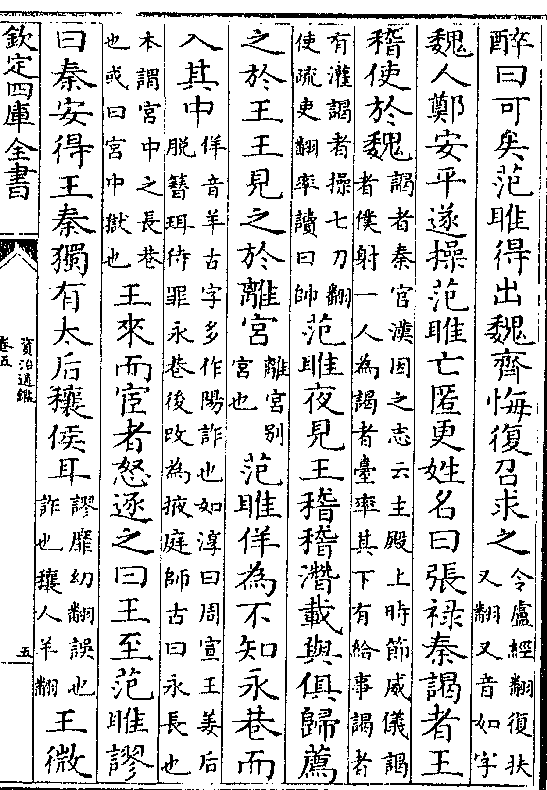 醉曰可矣范睢得出魏齊悔復召求之令盧經翻復扶又翻又音如字
魏人鄭安平遂操范睢亡匿更姓名曰張禄秦謁者王
稽使於魏謁者秦官漢因之志云主殿上時節威儀謁者僕射一人為謁者臺率其下有給事謁者
有灌謁者操七刀翻使疏吏翻率讀曰帥范睢夜見王稽稽潛載與俱歸薦
之於王王見之於離宮離宮别宮也范睢佯為不知永巷而
入其中佯音羊古字多作陽詐也如淳曰周宣王姜后脱簪珥待罪永巷後改為掖庭師古曰永長也
本謂宮中之長巷也或曰宮中獄也王來而宦者怒逐之曰王至范睢謬
曰秦安得王秦獨有太后穰侯耳謬靡幼翻誤也詐也穰人羊翻王微
欽定四庫全書
資治通鑑
卷五
五